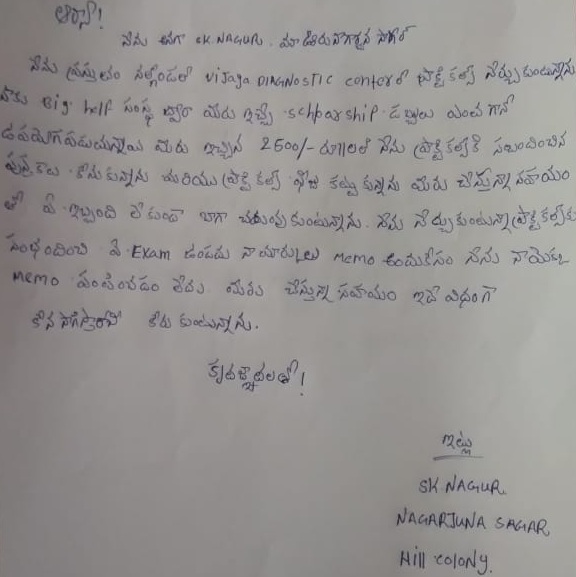 నేను అనగా SK.NAGUR. మా ఊరు నాగార్జున సాగర్
నేను ప్రస్తుతం నల్గొండలో Vijaya DIAGNOSTIC center లో ప్రాక్టికల్స్ నేర్చుకుంటున్నాను
నాకు Big help సంస్థ ద్వారా మీరు ఇచ్చే scholarship డబ్బులు ఎంత గానో
ఉపయోగపడుతున్నాయి మీరు ఇచ్చిన 2500/- రూ॥లలో నేను ప్రాక్టికల్స్ కి సంబంధించిన
పుస్తకాలు కొనుకున్నాను మరియు ప్రాక్టికల్స్ ఫీజు కట్టుకున్నను మీరు చేస్తున్నా సహాయం
తో ఏ ఇబ్బంది లేకుండా బాగా చదువుకుంటున్నాను. నేను నేర్చుకుంటున్నా ప్రాక్టికల్స్‌కు
సంభందించి ఏ Exam ఉండదు నా మార్కులు memo అందుకోసం నేను నాయొక్క
memo పంపించడం లేదు. మీరు చేస్తున్నా సహాయం ఇదే విధంగా
కొన సాగిస్తారని కోరు కుంటున్నాను.
కృతజ్ఞతలతో!
ఇట్లు
SK.NAGUR.
NAGARJUNA SAGAR
Hill colony.